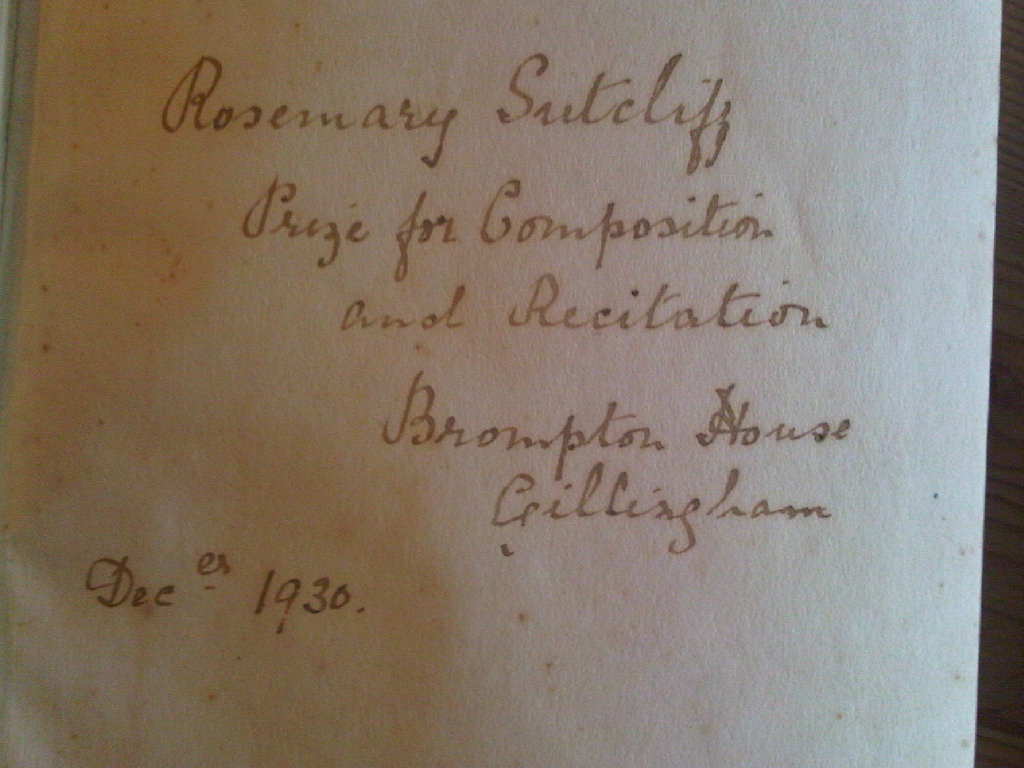 Rosemary Sutcliff
Prize for Composition
and Recitation
Brompton House
Gillingham
Dec er 1930.